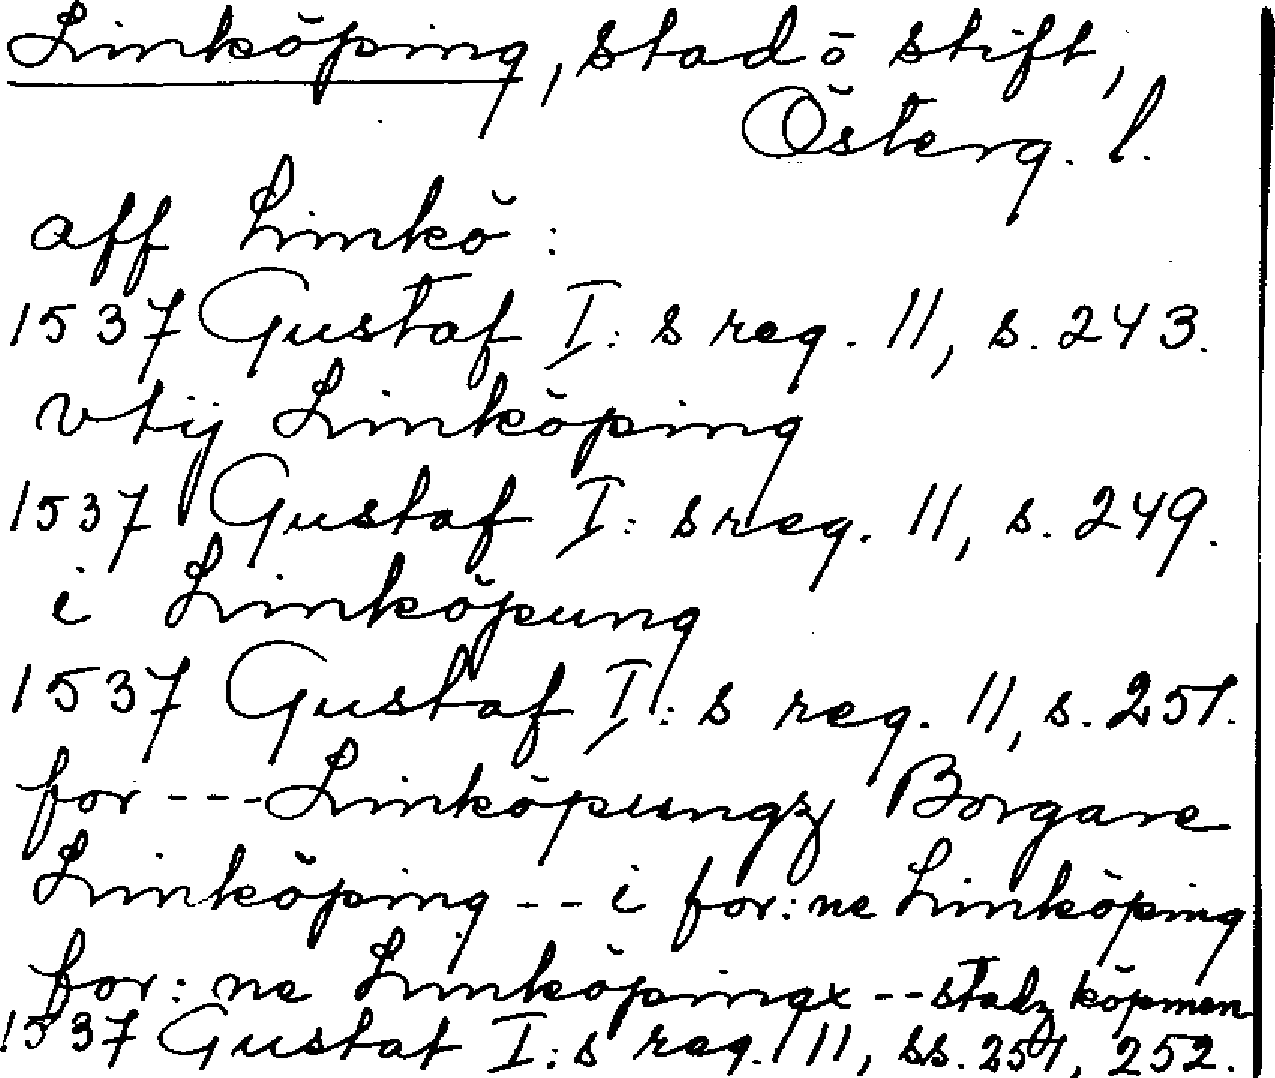 Linköping, stad ö stift,
Österg. l.
aff Linkö:
1537 Gustaf I:s reg. 11, s. 243.
vtij Linköping
1537 Gustaf I:s reg. 11, s. 249.
i Linköpung
1537 Gustaf I:s reg. 11, s. 251.
for --- Linköpungz Borgare
Linköping -- i for:ne Linköping
for:ne Linköpingx -- stadz köpmen
1537 Gustaf I:s reg. 11, ss. 251, 252.